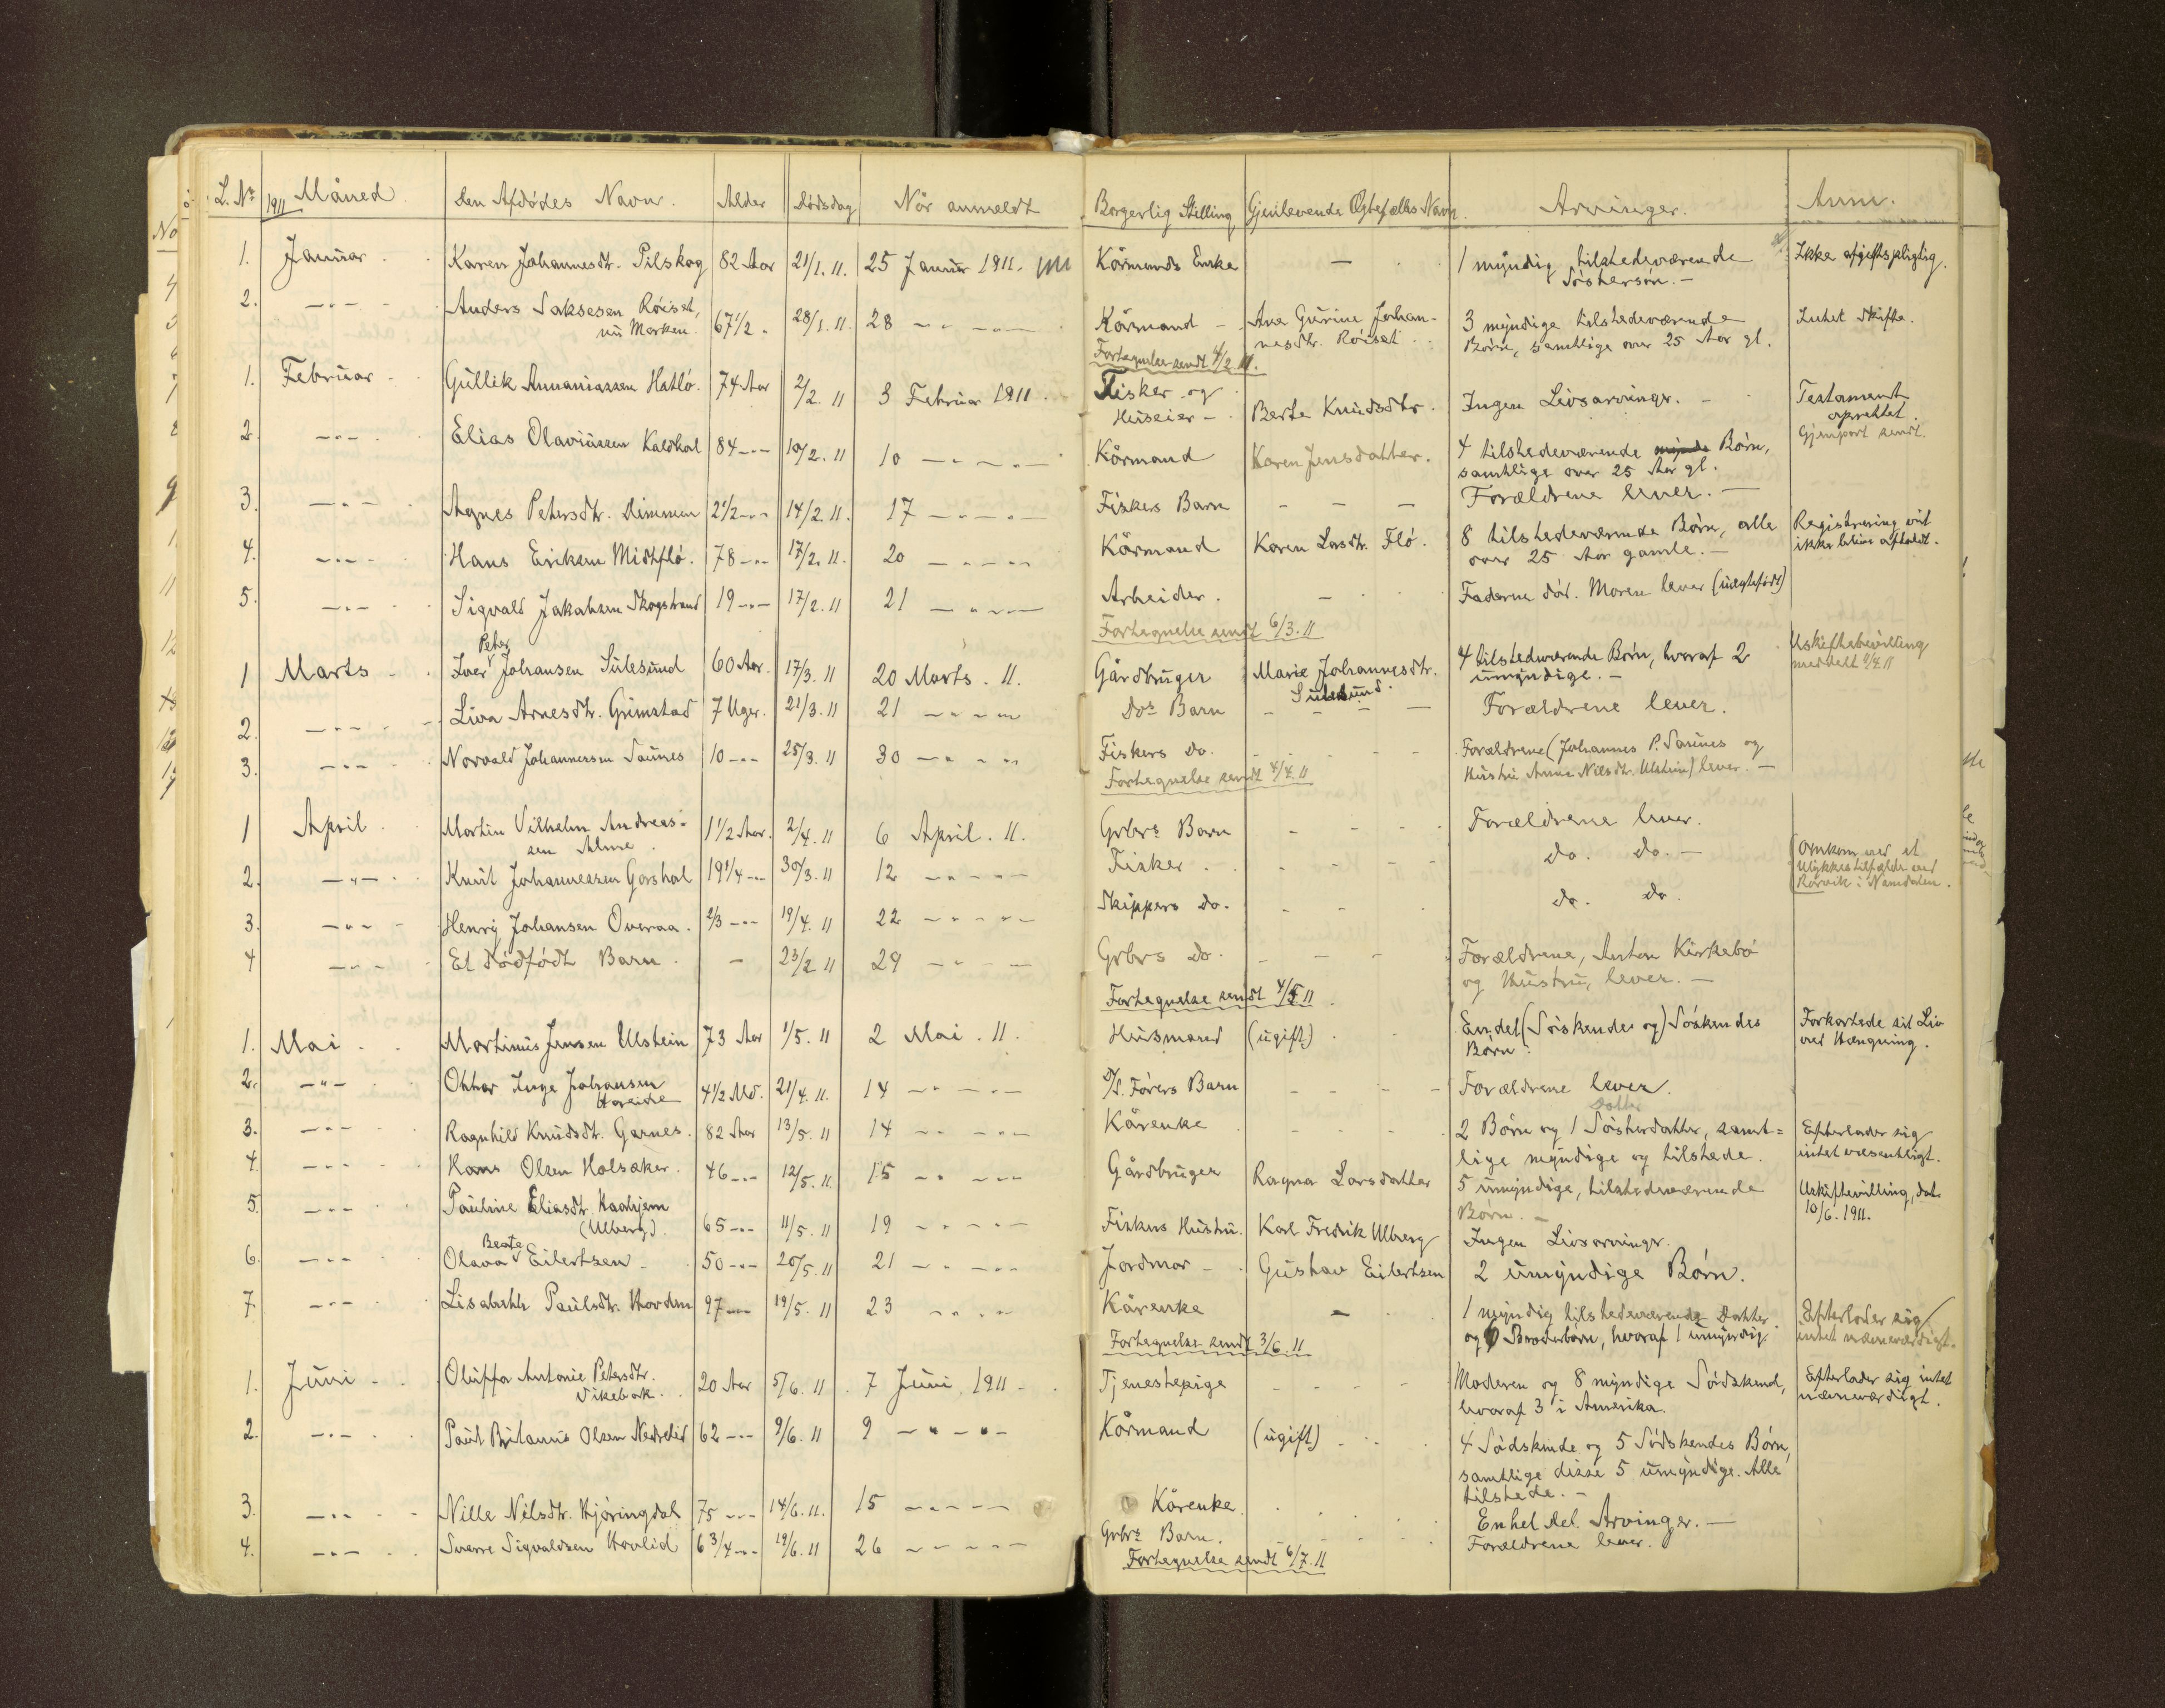 L. No 1911 Måned. Den Afdödes Navn. Alder Dödsdag Når anmeldt Borgerlig Stilling Gjenlevende Ægtefælles Navn. Arvinger. Anm.
1. Januar Karen Johannesdtr. Pilskog 82 Aar 21/1. 11. 25 Januar 1911. Kårmands Enke — 1 myndig tilstedeværende Ikke afgiftspligtig.
Söstersön. —
2. —"— Anders Saksesen Röiset, 67 1/2 " 28/1. 11. 28 —"— —"— Kårmand — Ane Gurine Johan- 3 myndige tilstedeværende Intet Skifte.
nu Marken. nesdtr. Röiset Börn, samtlige over 25 Aar gl.
Fortegnelse sendt 4/2. 11.
1. Februar Gullik Annaniassen Hatlö 74 Aar 2/2. 11 3 Februar 1911. Fisker og Ingen Livsarvinger. — Testament
Huseier — Berte Knudsdtr. oprettet.
Gjenpart sendt.
2. —"— Elias Olaviussen Kaldhol 84 —"— 10/2. 11 10 —"— —"— Kårmand Karen Jensdatter. 4 tilstedeværende Börn,
samtlige over 25 Aar gl.
3. —"— Agnes Petersdtr. Dimmen 2 1/2 —"— 14/2. 11. 17 —"— —"— Fiskers Barn — — — Forældrene lever. —
4. —"— Hans Eriksen Midtflö. 78 —"— 17/2. 11. 20 —"— —"— Kårmand Karen Larsdtr. Flö. 8 tilstedeværende Börn, alle Registrering vil
over 25 Aar gamle. — ikke blive afholdt.
5. —"— Sigvald Jakobsen Skogstrand 19 —"— 17/2. 11 21 —"— —"— Arbeider. — Faderen död. Moren lever (uægtefödt)
Fortegnelse sendt 6/3. 11
Peter
1 Marts Iver Johansen Sulesund 60 Aar. 17/3. 11 20 Marts. 11. Gårdbruger Marie Johannesdtr. 4 tilstedværende Börn, hvoraf 2 Uskiftebevilling
Sulesund. umyndige. — meddelt 4/4 11
2. —"— Liva Arnesdtr. Grimstad 7 Uger. 21/3. 11 21 —"— —"— Dos Barn — — — Forældrene lever.
3. —"— Norvald Johannessen Saunes 10 —"— 25/3. 11 30 —"— —"— Fiskers do. — — — Forældrene (Johannes P. Saunes og
Hustru Anne Nilsdtr. Ulstein) lever. —
Fortegnelse sendt 4/4. 11
1 April Martin Vilhelm Andreas- 1 1/2 Aar. 2/4. 11 6 April. 11. Grbrs Barn — — — Forældrene lever.
sen Alme.
2. —"— Knut Johannessen Garshol 19 1/4 —"— 30/3. 11 12 —"— —"— Fisker. — — — do. do. — Omkom ved et
Ulykkestilfælde ved
Rörvik i Namdalen.
3. —"— Henry Johansen Overaa. 2/3 —"— 19/4. 11 22 —"— —"— Skippers do. — — do. do.
4 —"— Et dödfödt Barn. — 23/2 11 29 —"— —"— Grbrs do. — — — Forældrene, Anton Kirkebö
og Hustru, lever. —
Fortegnelse sendt 4/5 11.
1. Mai Martinus Jensen Ulstein 73 Aar 1/5. 11 2 Mai. 11. Husmand (ugift) En del (Söskende og) Söskendes Forkortede sit Liv
Börn. ved Hængning.
2. —"— Ottar Inge Johansen 4 1/2 Md. 21/4. 11. 14 —"— —"— D/S. Förers Barn — — — Forældrene lever.
Hareide
Datter
3. —"— Ragnhild Knudsdtr. Garnes. 82 Aar 13/5. 11 14 —"— —"— Kårenke — — — 2 Börn og 1 Sösterdatter, samt- Efterlader sig
lige myndige og tilstede. intet væsentligt.
4. —"— Hans Olsen Holsæker. 46 —"— 12/5. 11. 15 —"— —"— Gårdbruger Ragna Larsdatter 5 umyndige, tilstedeværende Uskiftevilling, dat.
Börn. — 10/6. 1911.
5. —"— Pauline Eliasdtr. Haahjem
(Ulberg) 65 —"— 11/5. 11 19 —"— —"— Fiskers Hustru. Karl Fredrik Ulberg Ingen Livsarvinger.
Beate
6. —"— Olava Eilertsen 50 —"— 20/5. 11 21 —"— —"— Jordmor — Gustav Eilertsen 2 umyndige Börn.
7. —"— Lisabeth Paulsdtr. Hovden 97 —"— 19/5. 11 23 —"— —"— Kårenke — 1 myndig tilstedeværende Datter Efterlader sig
og 6 Broderbörn, hvoraf 1 umyndig. intet nævneværdigt.
Fortegnelse sendt 3/6. 11
1. Juni Oluffa Antonie Petersdtr. 20 Aar 5/6. 11. 7 Juni 1911 — Tjenestepige — — — Moderen og 8 myndige Södskend, Efterlader sig intet
Vikebak. hvoraf 3 i Amerika. nævneværdigt.
2. —"— Paul Britanus Olsen Nedrelid 62 —"— 9/6. 11 9 —"— —"— Kårmand (ugift) 4 Södskende og 5 Södskendes Börn,
samtlige disse 5 umyndige. Alle
tilstede. —
3. —"— Nille Nilsdtr. Hjöringdal 75 —"— 14/6. 11. 15 —"— —"— Kårenke. Enhel Del Arvinger. —
4. —"— Sverre Sigvaldsen Hovlid 6 3/4 —"— 19/6. 11 26 —"— —"— Grbrs Barn. — — — Forældrene lever.
Fortegnelse sendt 6/7. 11